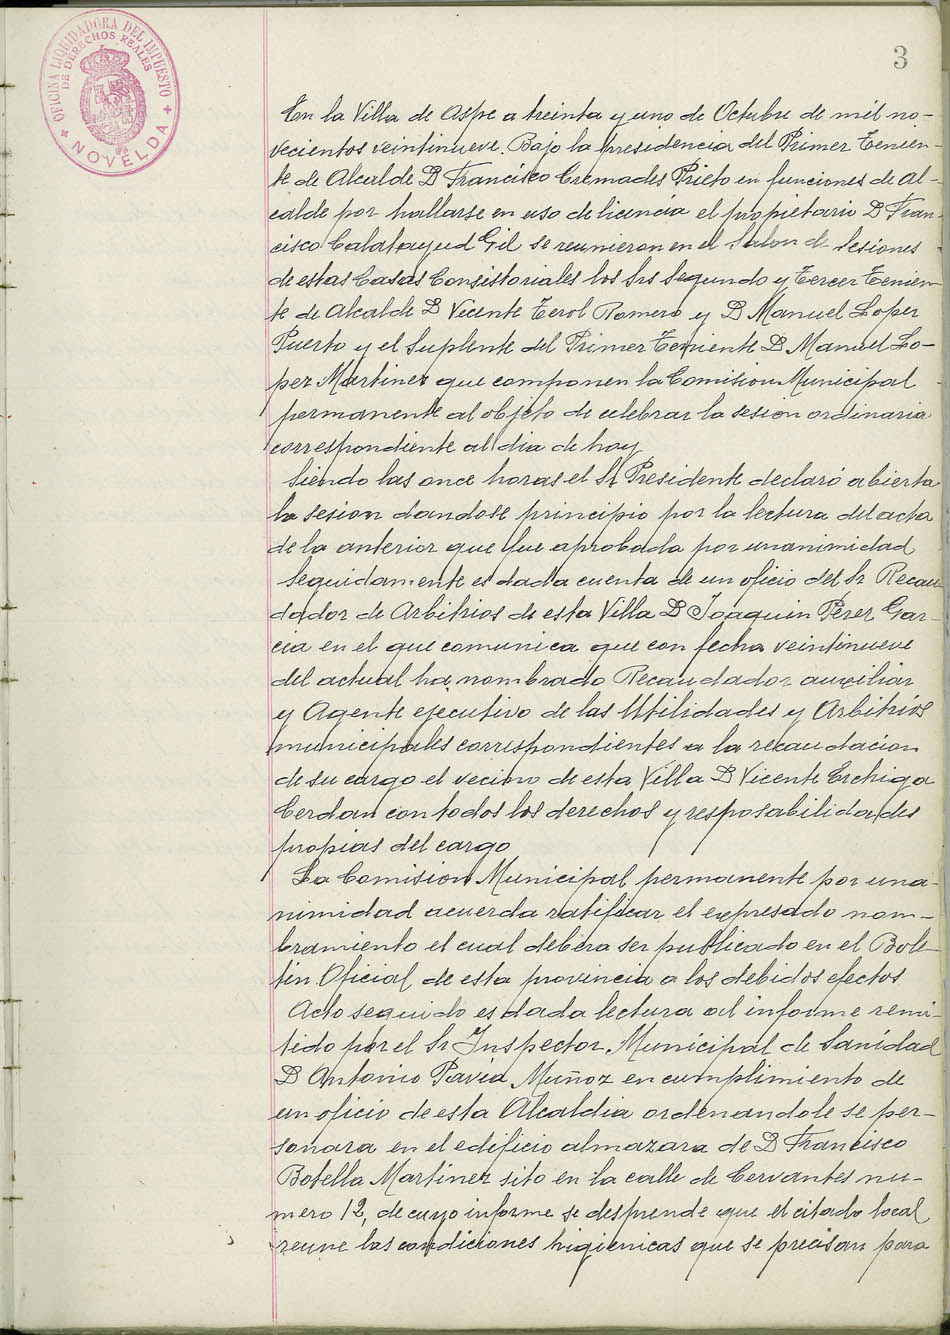 OFICINA LIQUIDADORA DEL IMPUESTO
DE DERECHOS REALES
NOVELDA
3
En la Villa de Aspe a treinta y uno de Octubre de mil no-
vecientos veintinueve. Bajo la presidencia del Primer Tenien-
te de Alcalde D Francisco Cremades Prieto en funciones de Al-
calde por hallarse en uso de licencia el propietario D Fran-
cisco Calatayud Gil se reunieron en el Salon de Sesiones
de estas Casas Consistoriales los Srs Segundo y Tercer Tenien-
te de Alcalde D Vicente Terol Romero y D Manuel Lopez
Puerto y el Suplente del Primer Teniente D Manuel Lo-
pez Martinez que componen la Comision Municipal
permanente al objeto de celebrar la sesion ordinaria
correspondiente al dia de hoy
Siendo las once horas el Sr Presidente declaró abierta
la sesion dandose principio por la lectura del acta
de la anterior que fue aprobada por unanimidad
Seguidamente es dada cuenta de un oficio del Sr Recau-
dador de Arbitrios de esta Villa D Joaquin Perez Gar-
cia en el que comunica que con fecha veintinueve
del actual ha nombrado Recaudador auxiliar
y Agente ejecutivo de las Utilidades y Arbitrios
municipales correspondientes a la recaudacion
de su cargo el vecino de esta Villa D Vicente Erchiga
Cerdan con todos los derechos y resposabilidades
propias del cargo
La Comision Municipal permanente por una-
nimidad acuerda ratificar el expresado nom-
bramiento el cual debera ser publicado en el Bole-
tin Oficial de esta provincia a los debidos efectos
Acto seguido es dada lectura al informe remi-
tido por el Sr Inspector Municipal de Sanidad
D Antonio Pavia Muñoz en cumplimiento de
un oficio de esta Alcaldia ordenandole se per-
sonara en el edificio almazara de D Francisco
Botella Martinez sito en la calle de Cervantes nu-
mero 12, de cuyo informe se desprende que el citado local
reune las condiciones higienicas que se precisan para